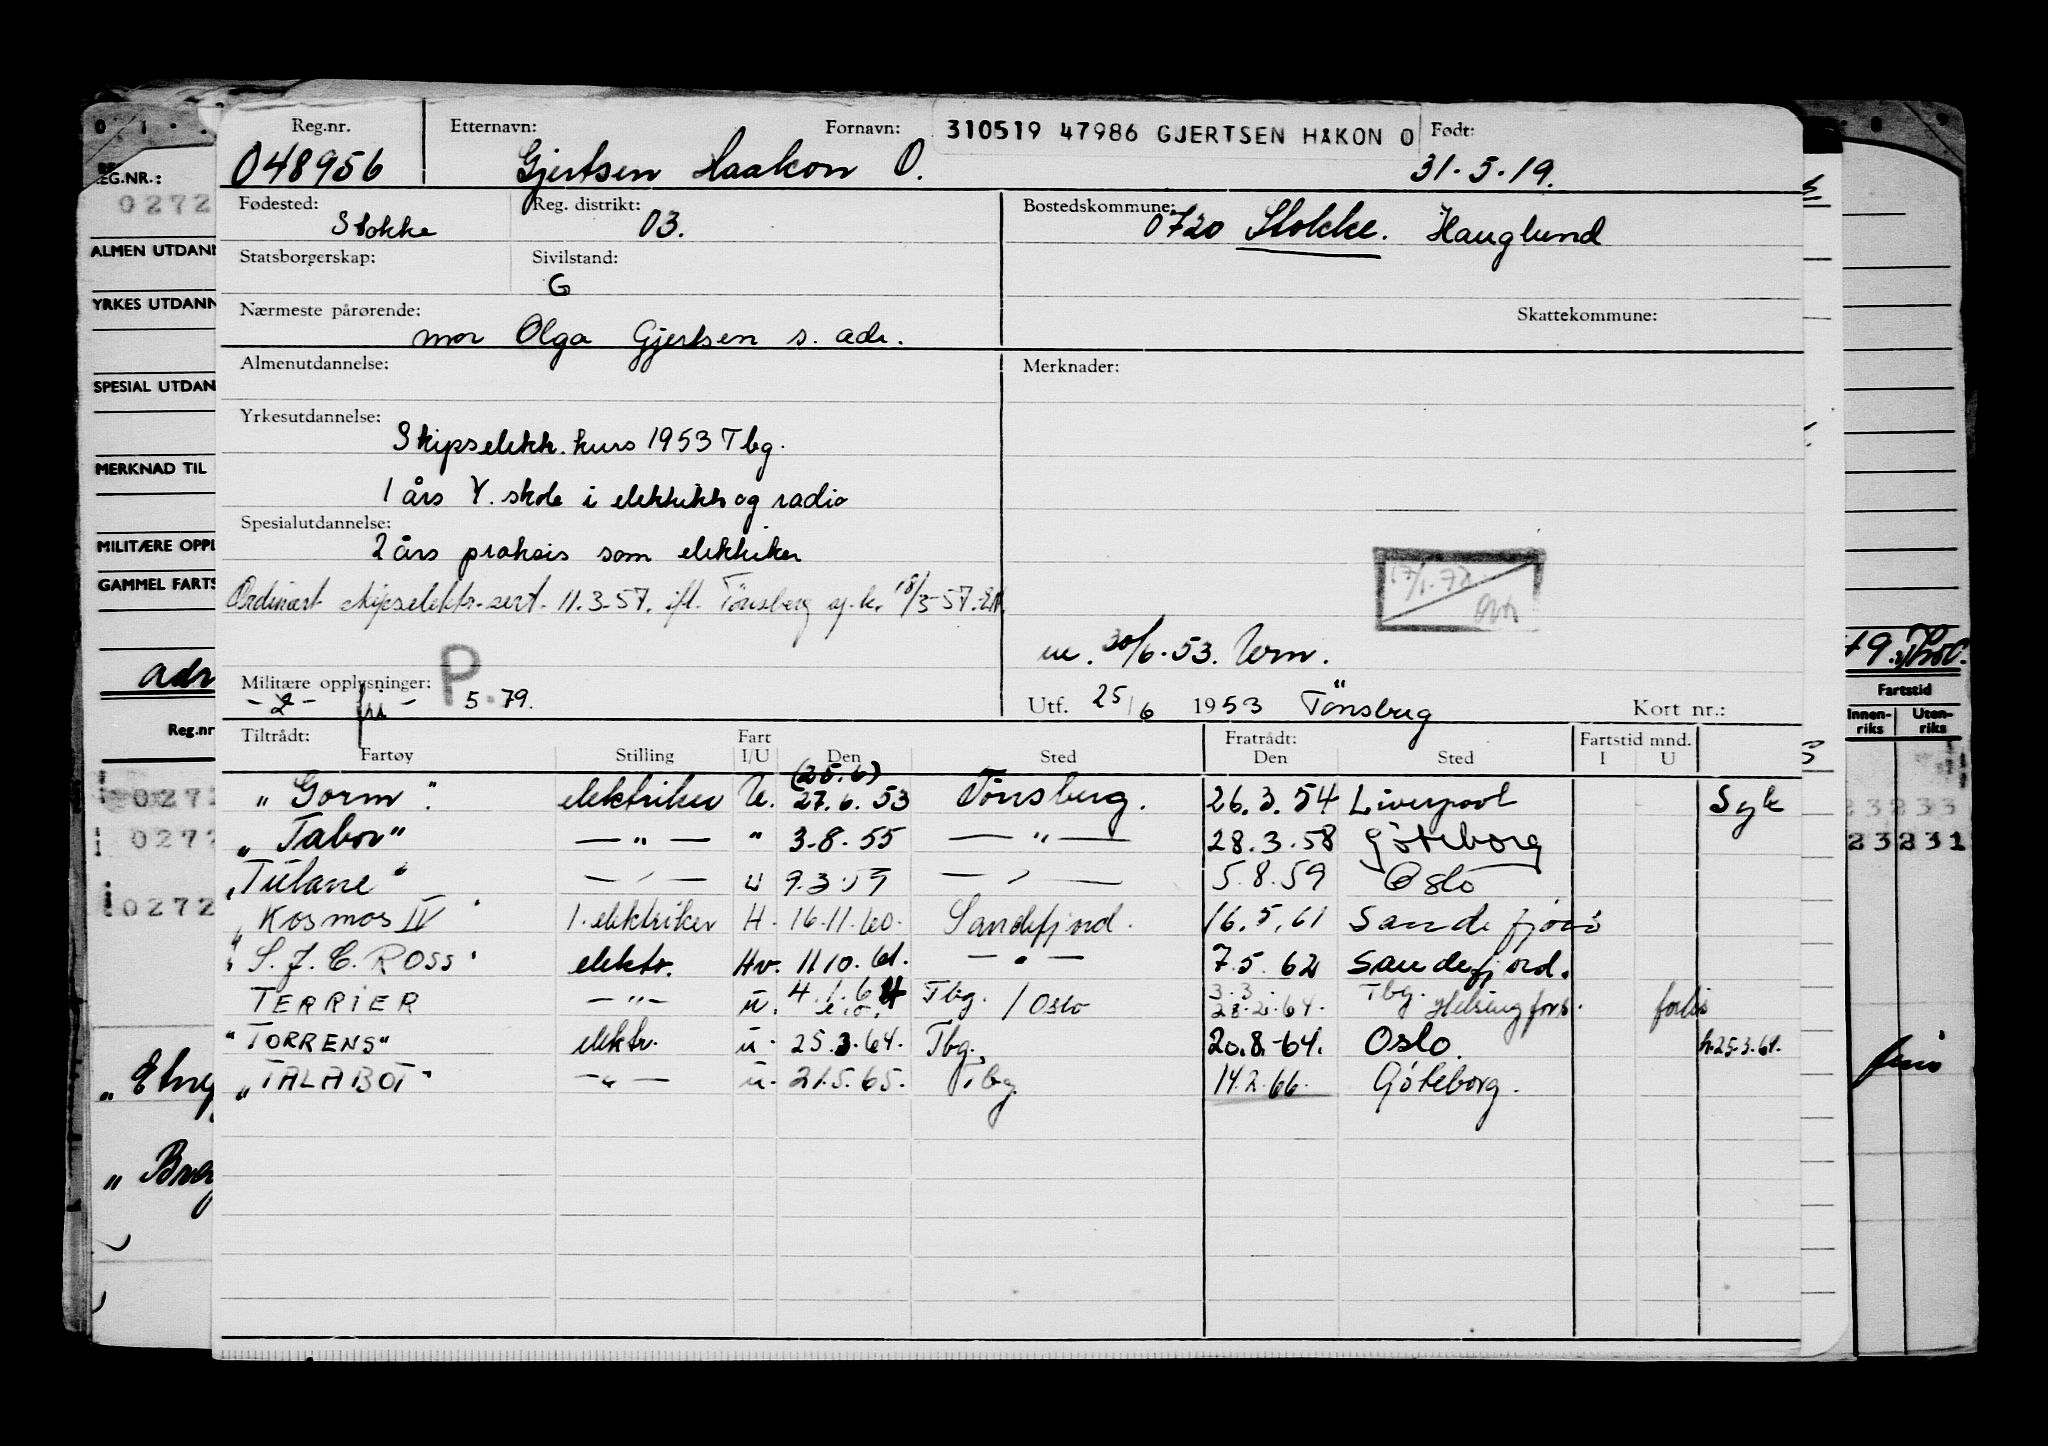 Reg.nr. Etternavn: Fornavn: 310519 47986 GJERTSEN HAKON O Født:
048956 Gjertsen Haakon O. 31.5.19.
Fødested: Stokke Reg. distrikt: 03. Bostedskommune: 0720 Stokke. Hauglund
Statsborgerskap: Sivilstand: G
Nærmeste pårørende: mor Olga Gjertsen s. adr. Skattekommune:
Almenutdannelse: Merknader:
Yrkesutdannelse:
Skipselekk. kurs 1953 Tbg.
1 års Y. skole i elektrikk og radio
Spesialutdannelse:
2 års praksis som elektriker
Ordinært skipselektr-sert. 11.3-57. ifl. Tønsberg sj.k. 18/3-57.
17/1.72
30/6.53.
Militære opplysninger: P
fri 5.79.
Utf. 25/6 1953 Tönsberg Kort nr.:
Tiltrådt: Fart Fratrådt: Fartstid mnd.
Fartøy Stilling I/U Den Sted Den Sted I U
(25.6)
"Gorm" elektriker U. 27.6.53 Tönsberg. 26.3.54 Liverpool Syk
"Tabor" — " — " 3.8.55 — " — 28.3.58 Göteborg
"Tulane" — " — u 9.3.59 — " — 5.8.59 Oslo
"Kosmos IV" 1. elektriker H. 16.11.60. Sandefjord. 16.5.61 Sandefjord
"S. J. E. ROSS" elektr. Hv. 11.10.61. — " — 7.5.62 Sandefjord.
TERRIER — " — u. 4.1.64 Tbg. / Oslo 3.3. 28.2.64. Tbg. Helsingfors. forlis
"TORRENS" elektr. u. 25.3.64. Tbg. 20.8.-64. Oslo. h.25.3.64.
"TALABOT" — " — u. 21.5.65. Tbg. 14.2.66. Göteborg.
REG.NR.:
0272
ALMEN UTDANN
YRKES UTDANN
SPESIAL UTDAN
MERKNAD TIL
MILITÆRE OPPL
GAMMEL FARTS
adr
Reg.nr
0272
0272
0272
Fartstid
Innen-riks Uten-riks
23233
23231